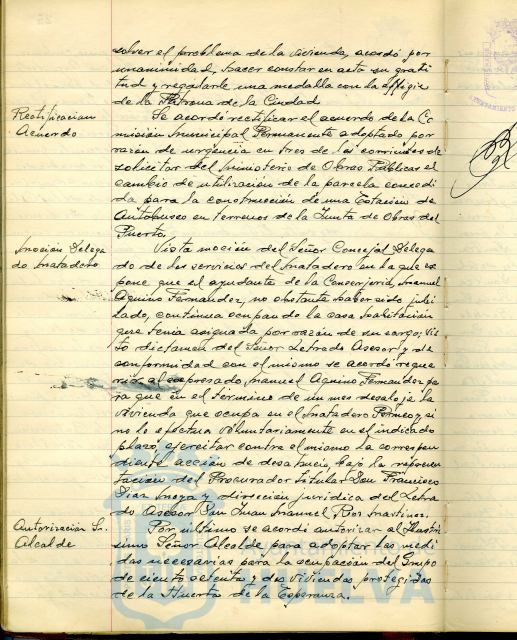 solver el problema de la vivienda, acordó por
unanimidad, hacer constar en acta su grati
tud y regalarle una medalla con la effigie
de la Patrona de la Ciudad
Rectificacion
Acuerdo
Se acordó rectificar el acuerdo de la Co
misión municipal Permanente adoptado por
razón de urgencia en tres de los corrientes de
solicitar del ministerio de Obras Públicas el
cambio de utilización de la parcela concedi
da para la construcción de una Estación de
Autobuses en terrenos de la Junta de Obras del
Puerto.
Moción Delega
do Matadero
Vista moción del Señor Concejal Delega
do de los servicios del Matadero en la que ex
pone que el ayudante de la Conserjería, Manuel
Aquino Fernandez, no obstante haber sido jubi
lado, continua ocupando la casa habitación
que tenia asignada por razón de su cargo; Vis
to dictamen del Señor Letrado Asesor y de
conformidad con el mismo se acordó reque
rir al expresado, Manuel Aquino Fernandez pa
ra que en el término de un mes desaloje la
vivienda que ocupa en el Matadero y si
no lo efectua voluntariamente en el indicado
plazo, ejercitar contra el mismo la correspon
diente acción de desahucio, bajo la represen
tación del Procurador titular Don Francisco
Diaz y dirección juridica del Letra
do Asesor Don Juan Manuel Martinez.
Autorización Sr.
Alcalde
Por último se acordó autorizar al Ilustri
simo Señor Alcalde para adoptar las medi
das necesarias para la ocupación del Grupo
de ciento setenta y dos viviendas protegidas
de la Huerta de la Esperanza.
HUELVA